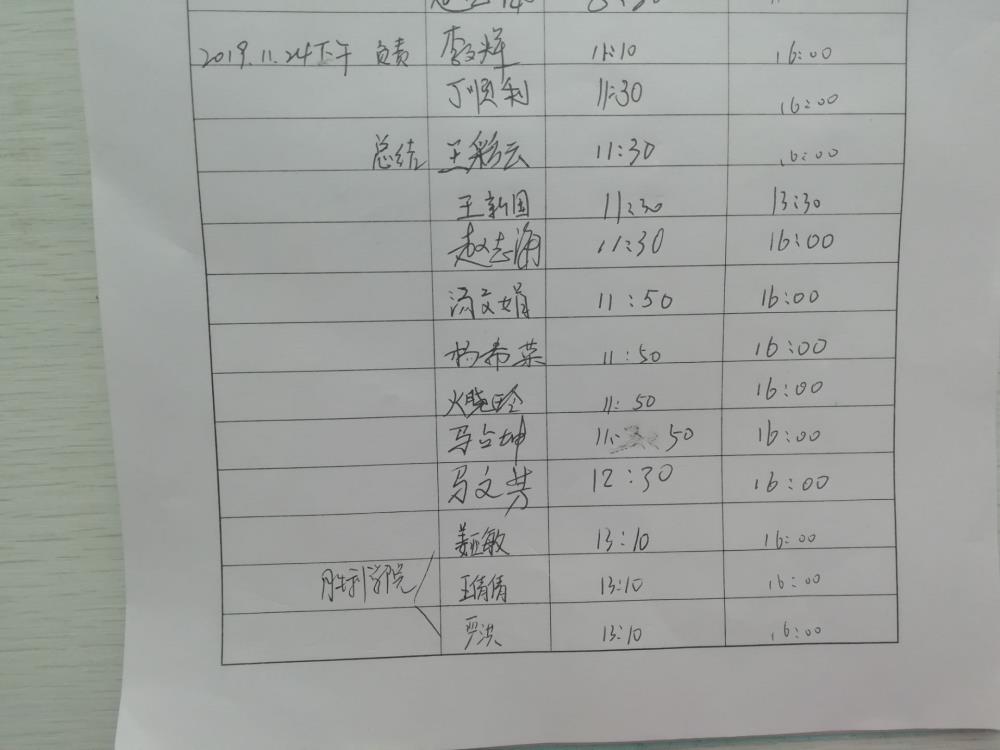 8:30
2019.11.24下午 负责 李文辉 11:10 16:00
丁顺利 11:30 16:00
总结 王彩云 11:30 16:00
王新国 11:30 13:30
赵志海 11:30 16:00
汤文娟 11:50 16:00
杨希菜 11:50 16:00
火晓玲 11:50 16:00
马占坤 11:50 16:00
马文芳 12:30 16:00
姜亚敏 13:10 16:00
胜利学院 王倩倩 13:10 16:00
严洪 13:10 16:00